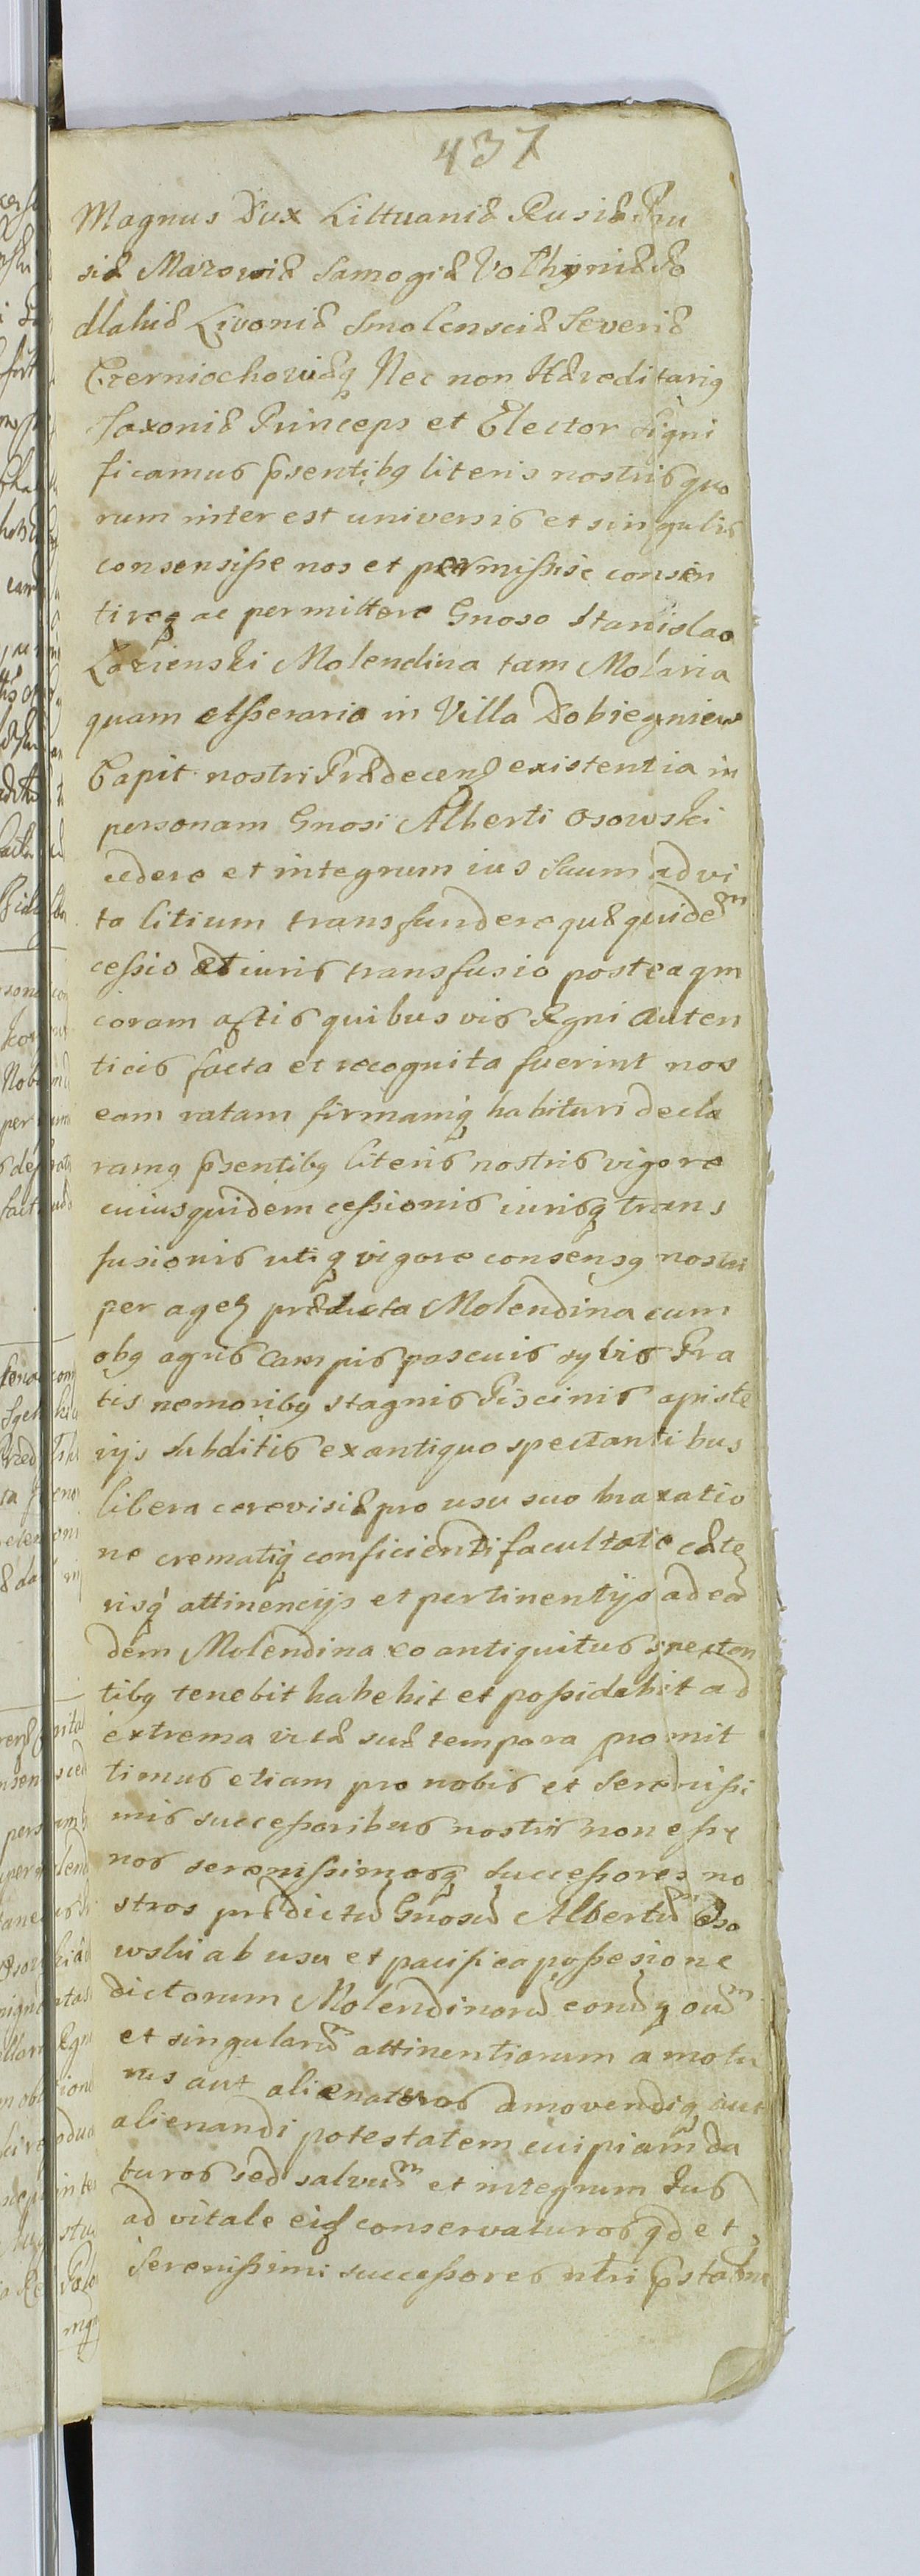 437
Magnus Dux Littuaniæ Rusiæ Pru
siæ Mazowiæ Samogiæ Volhyniæ Po
dlahiæ Livoniæ Smolensciæ Severiæ
Czerniochoviæq Nec non Hæreditariq
Saxoniæ Princeps et Elector Signi
ficamus psentibq literis nostris quo
rum inter est universis et singulis
consensisse nos et permissise consen
tireq ac permittere Gnoso Stanislao
Lozienski Molendina tam Molaria
quam Asseraria in Villa Dobiegniewo
Capit nostri Prædecen existentia in
personam Gnosi Alberti Osowski
cedere et integrum ius Suum ad vi
ta litium transfundere quæ quidem
cessio et iuris transfusio posteaqm
coram actis quibus vis Regni Auten
ticis facta et recognita fuerint nos
eam ratam firmamq habituri decla
ramq psentibq literis nostris vigore
cuiusquidem cessionis iurisq trans
fusionis utiq vigore consensq nostri
per agez prædicta Molendina cum
obq agris campis pascuis sylvis Pra
tis nemoribq stagnis Piscinis apiste
rijs subditis exantiquo spectantibus
libera cerevisiæ pro usu suo braxatio
ne crematiq conficiendi facultate cæte
risq attinencijs et pertinentijs ad ea
dem Molendina ex antiquitus spectan
tibq tenebit habebit et possidebit ad
extrema vitæ suæ tempora promit
timus etiam pro nobis et Serenissi
mis successoribus nostris non esse
nos serenissimosq successores no
stros prædictum Gnosum Albertum Oso
wski ab usu et pacifica possesione
dictorum Molendinorum eorumq oum
et singularum attinentiarum amotu
ros aut alienaturos amovendiq aut
alienandi potestatem cuipiam da
turos sed salvum et integrum Jus
ad vitale eiq conservaturos qd et
Serenissimi successores ntri pstabunt